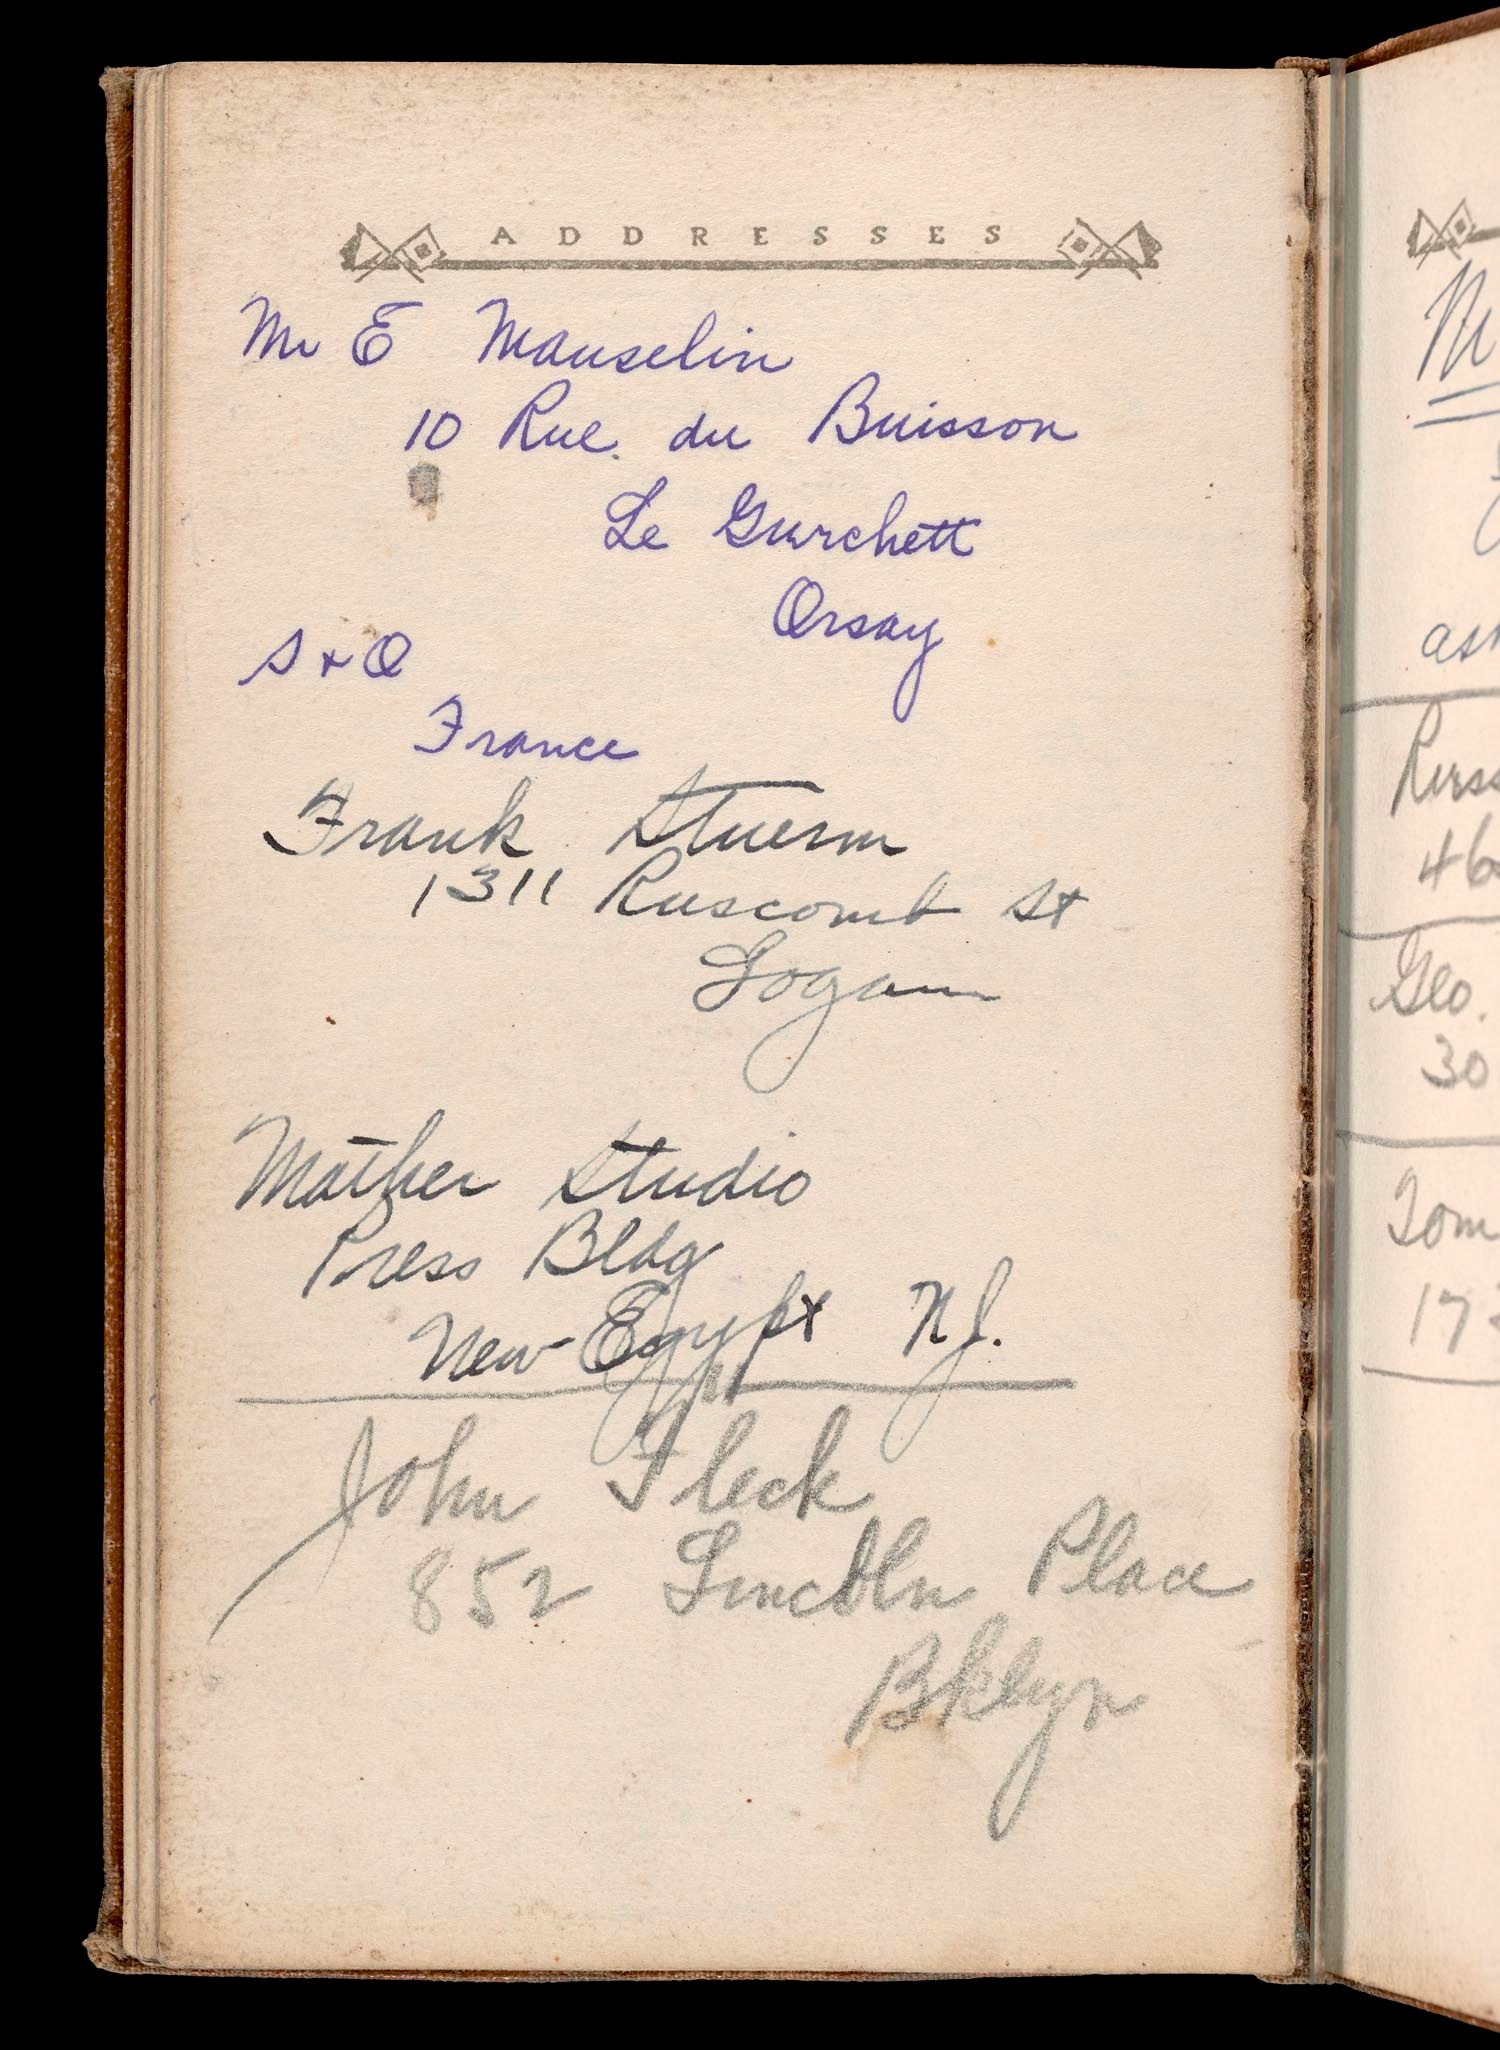 ADDRESSES
Mr E Mauselin
10 Rue du Buisson
Le Gurchett
Orsay
S & O
France
Frank Stuerm
1311 Ruscomb St
Logan
Mather Studio
Press Bldg
New Egypt N.J.
John Fleck
852 Lincoln Place
Bklyn
Geo.
30
Tom